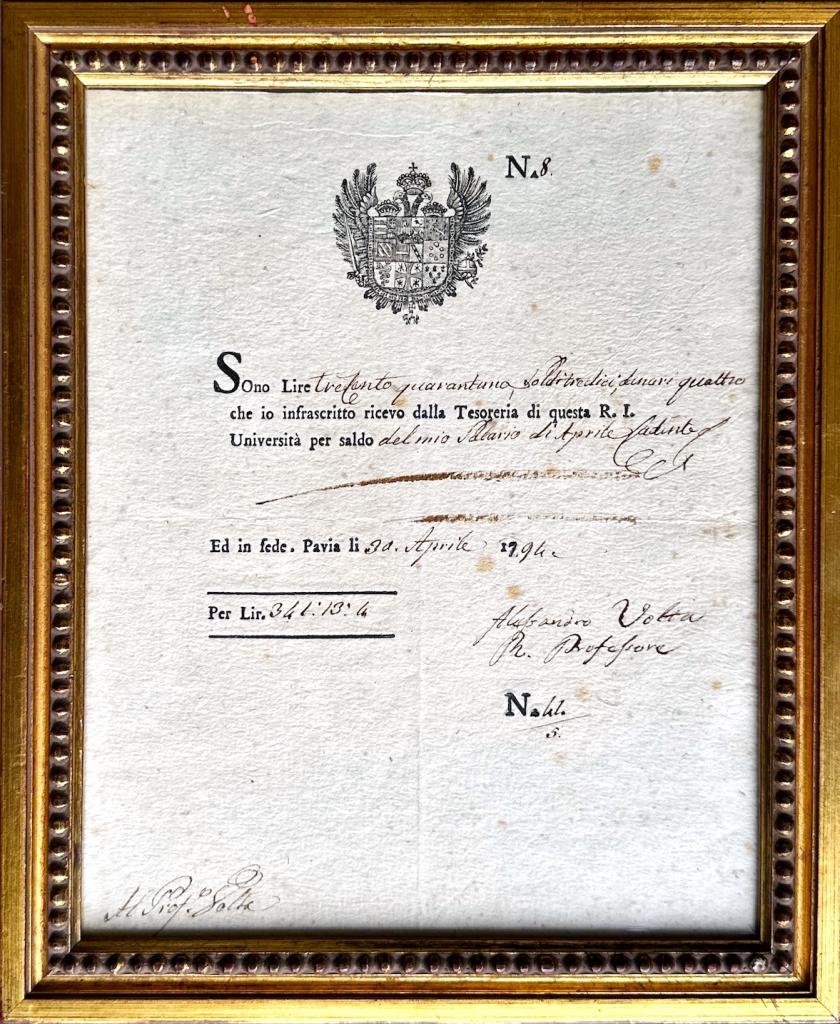 N. 8.
Sono Lire trecento quarantuna, soldi tredici, denari quattro
che io infrascritto ricevo dalla Tesoreria di questa R. I.
Università per saldo del mio Salario di Aprile cadente
Ed in fede. Pavia li 30. Aprile 1794.
Per Lir. 341: 13: 4
Alessandro Volta
Pr. Professore
N. 41.
5.
Al Prof.º Volta